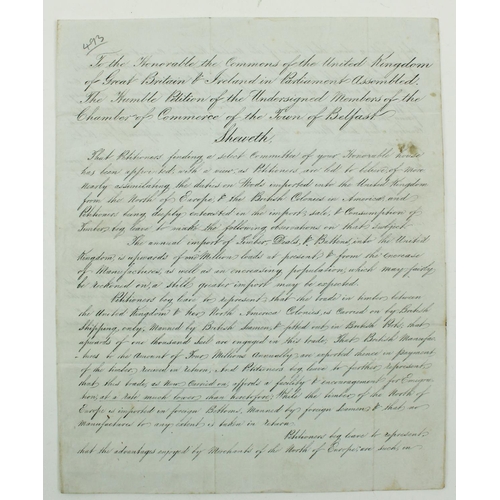 493
To the Honorable the Commons of the United Kingdom
of Great Britain & Ireland in Parliament Assembled;
The Humble Petition of the Undersigned Members of the
Chamber of Commerce of the Town of Belfast
Sheweth,
That Petitioners finding a select Committee of your Honorable house
has been appointed, with a view, as Petitioners are led to believe, of more
nearly assimilating the duties on Wood imported into the United Kingdom
from the North of Europe, & the British Colonies in America, and
Petitioners being deeply interested in the import, sale, & Consumption of
Timber, beg leave to make the following observations on that subject
The annual import of Timber, Deals, & Battens, into the United
Kingdom, is upwards of Million loads at present, & from the increase
of Manufactures, as well as an increasing population, which may fairly
be reckoned on, a still greater import may be expected.
Petitioners beg leave to represent, that the trade in timber between
the United Kingdom & her North America Colonies, is carried on by British
Shipping, only, Manned by British Seamen, & fitted out in British Ports, that
upwards of one thousand Sail are engaged in this trade, That British Manufac
tures to the Amount of Four Millions Annually are exported hence in payment
of the timber received in return, And Petitioners beg leave to further represent
that this trade, as now Carried on affords a facility & encouragement for Emigra
tion, at a rate much lower than heretofore While the timber of the North of
Europe is imported in foreign Bottoms, Manned by foreign Seamen, & that no
Manufactures to any extent is taken in return.
Petitioners beg leave to represent,
that the advantages enjoyed by Merchants of the North of Europe, are such, in